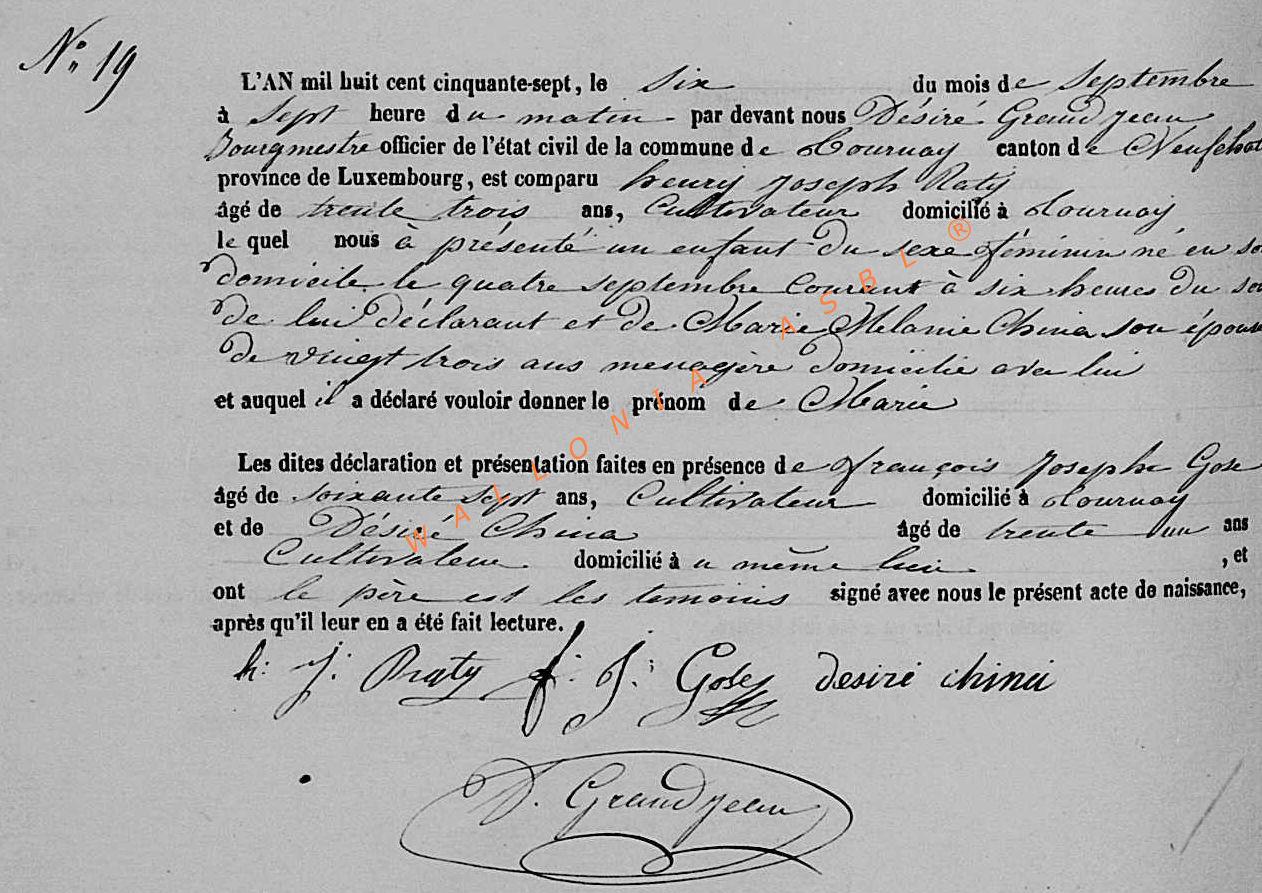 N° 19
L'AN mil huit cent cinquante-sept, le six du mois de Septembre
à Sept heure du matin - par devant nous Désiré Grandjean
Bourgmestre officier de l'état civil de la commune de Tournay canton de Neufchat
province de Luxembourg, est comparu henry Joseph Raty
âgé de trente trois ans, Cultivateur domicilié à Tournay
le quel nous à présenté un enfant du sexe féminin né en so
domicile le quatre septembre Courant à six heures du so
de lui déclarant et de Marie Mélanie China son épouse
de vingt trois ans menagère domicilié avec lui
et auquel il a déclaré vouloir donner le prénom de Marie
Les dites déclaration et présentation faites en présence de françois Joseph Gose
âgé de soixante sept ans, Cultivateur domicilié à Tournay
et de Désiré China âgé de trente un ans
Cultivateur domicilié à u même lieu , et
ont le père est les temoins signé avec nous le présent acte de naissance,
après qu'il leur en a été fait lecture.
h: J: Raty f: J: Gose desiré china
D. Grandjean
WALLONIA ASBL ®